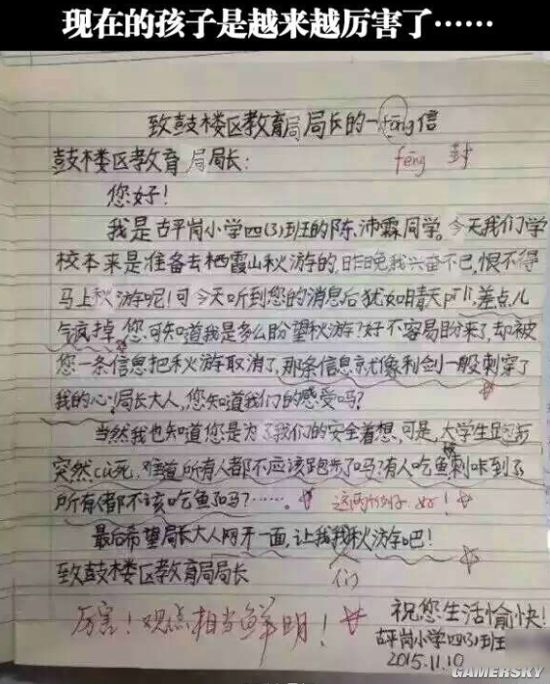 现在的孩子是越来越厉害了……
致鼓楼区教育局局长的一fēng信
fēng 封
鼓楼区教育局局长：
您好！
我是古平岗小学四(3)班的陈沛霖同学。今天我们学
校本来是准备去栖霞山秋游的，昨晚我兴奋不已，恨不得
马上秋游呢！可今天听到您的消息后犹如晴天pī lì，差点儿
气疯掉。您可知道我是多么盼望秋游？好不容易盼来了，却被
您一条信息把秋游取消了，那条信息就像利剑一般刺穿了
我的心！局长大人，您知道我们的感受吗？
当然我也知道您是为了我们的安全着想，可是，大学生跑步
突然cù死，难道所有人都不应该跑步了吗？有人吃鱼刺咔到了
所有都不该吃鱼了吗？……。
这两个例子好！
最后希望局长大人网开一面，让我我秋游吧！
们
致鼓楼区教育局局长
厉害！观点相当鲜明！
祝您生活愉快！
古平岗小学四(3)班
2015.11.10
GAMERSKY